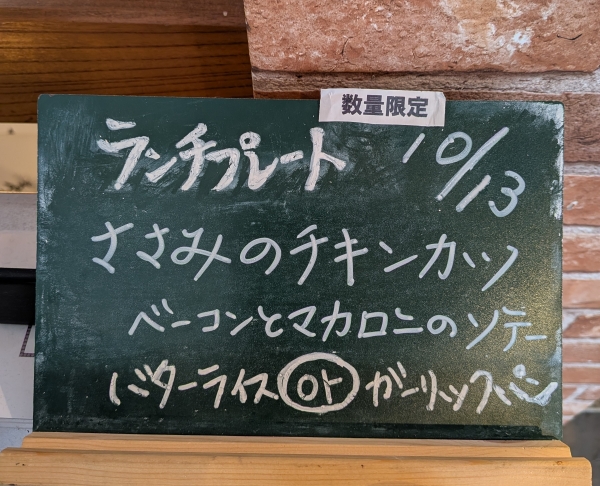 数量限定
ランチプレート 10/13
ささみのチキンカツ
ベーコンとマカロニのソテー
バターライス or ガーリックパン